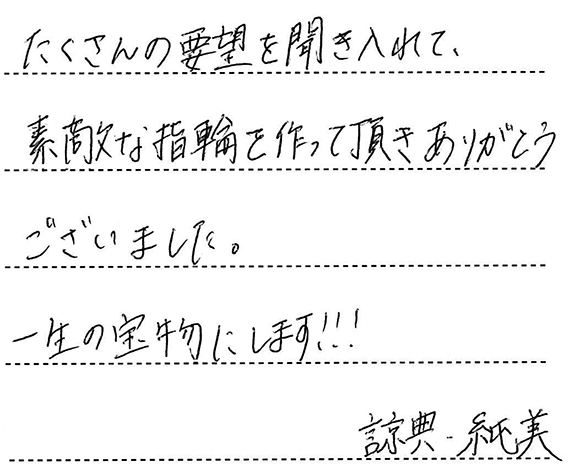 たくさんの要望を聞き入れて、
素敵な指輪を作って頂きありがとう
ございました。
一生の宝物にします!!!
諒典・純美